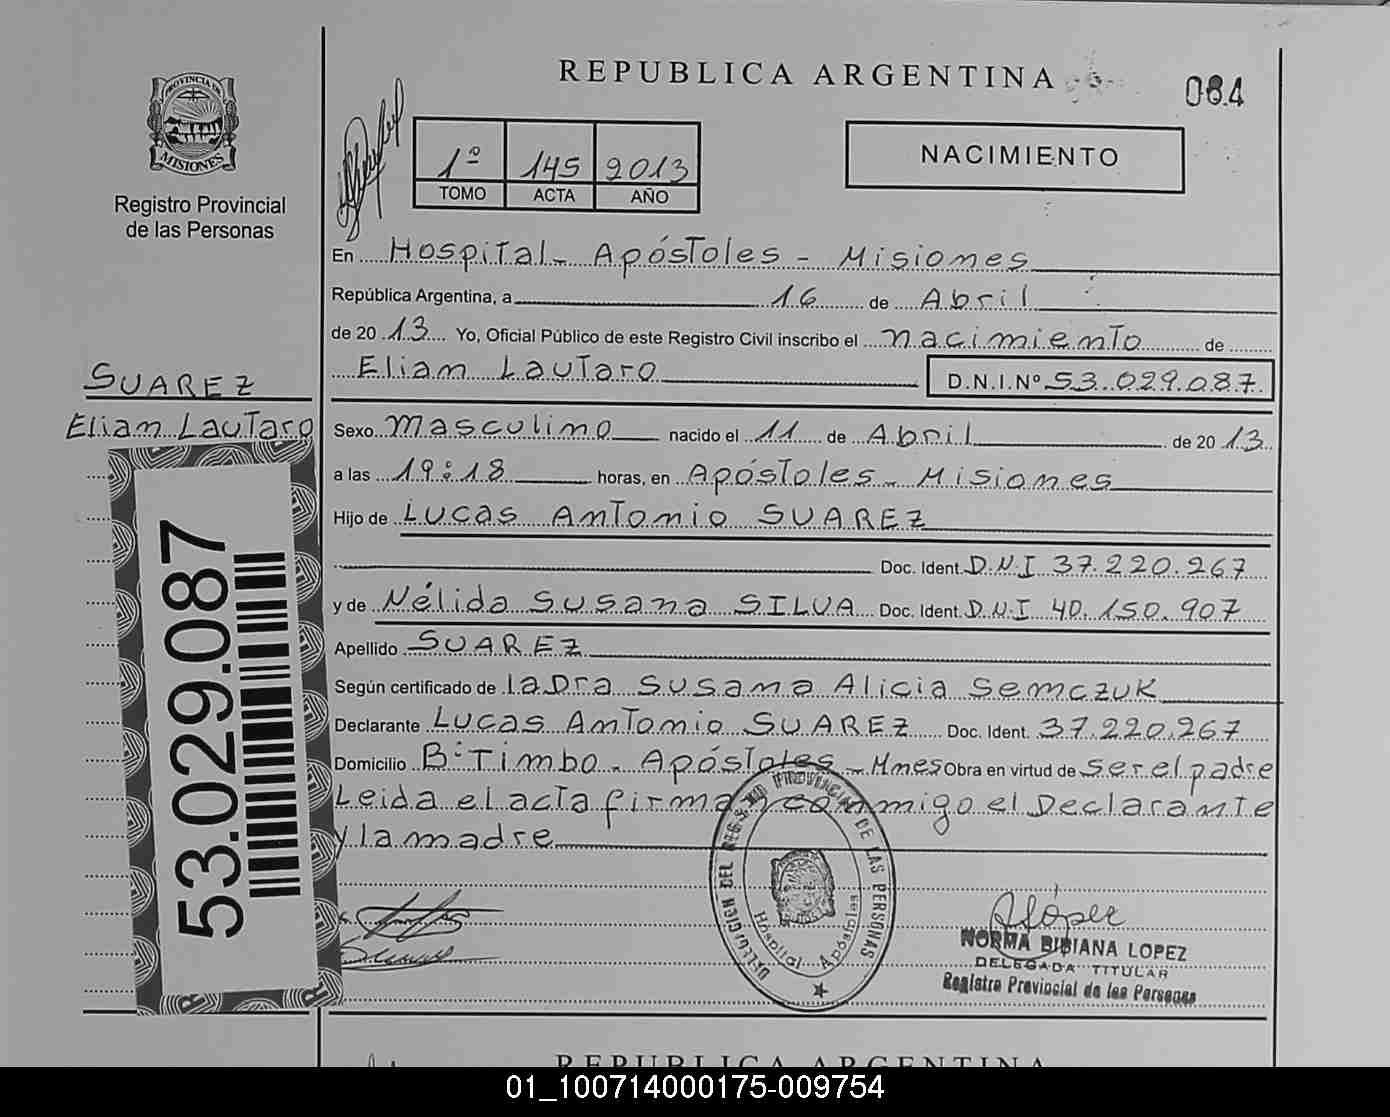 REPUBLICA ARGENTINA
084
PROVINCIA DE
MISIONES
Registro Provincial
de las Personas
1º 145 2013
TOMO ACTA AÑO
NACIMIENTO
En Hospital - Apóstoles - Misiones
República Argentina, a 16 de Abril
de 20 13 Yo, Oficial Público de este Registro Civil inscribo el nacimiento de
Eliam Lautaro D.N.I.Nº 53.029.087
SUAREZ
Eliam Lautaro
Sexo masculino nacido el 11 de Abril de 20 13
a las 19:18 horas, en Apóstoles - Misiones
Hijo de LUCAS ANTONIO SUAREZ
Doc. Ident. D.N.I 37.220.267
y de Nélida Susana SILVA Doc. Ident. D.N.I 40.150.907
Apellido SUAREZ
Según certificado de la Dra Susana Alicia Semczuk
Declarante LUCAS Antonio SUAREZ Doc. Ident. 37.220.267
Domicilio Bº Timbo - Apóstoles - Mnes Obra en virtud de ser el padre
Leida el acta firman conmigo el Declarante
y la madre
53.029.087
DELEGACION DEL REGISTRO PROVINCIAL DE LAS PERSONAS
Hospital Apóstoles
NORMA BIBIANA LOPEZ
DELEGADA TITULAR
Registro Provincial de las Personas
REPUBLICA ARGENTINA
01_100714000175-009754